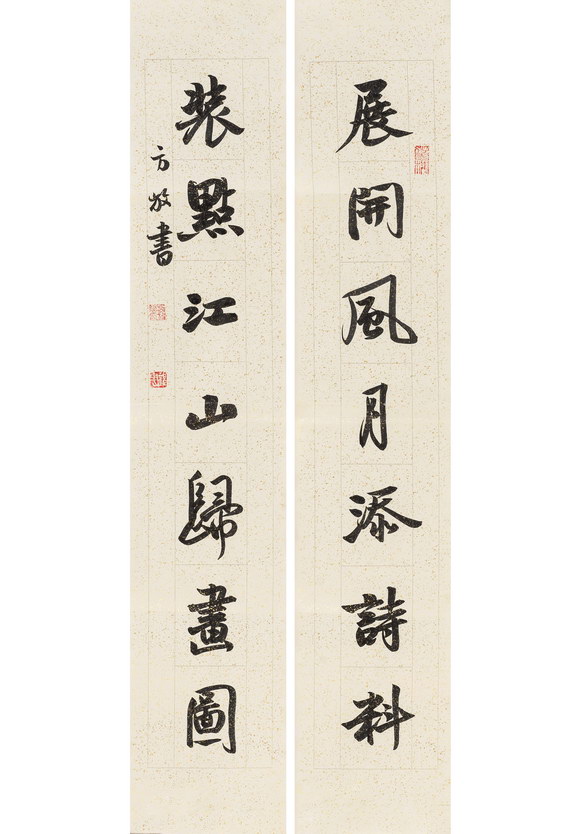 展開風月添詩料
裝點江山歸畫圖
方放書